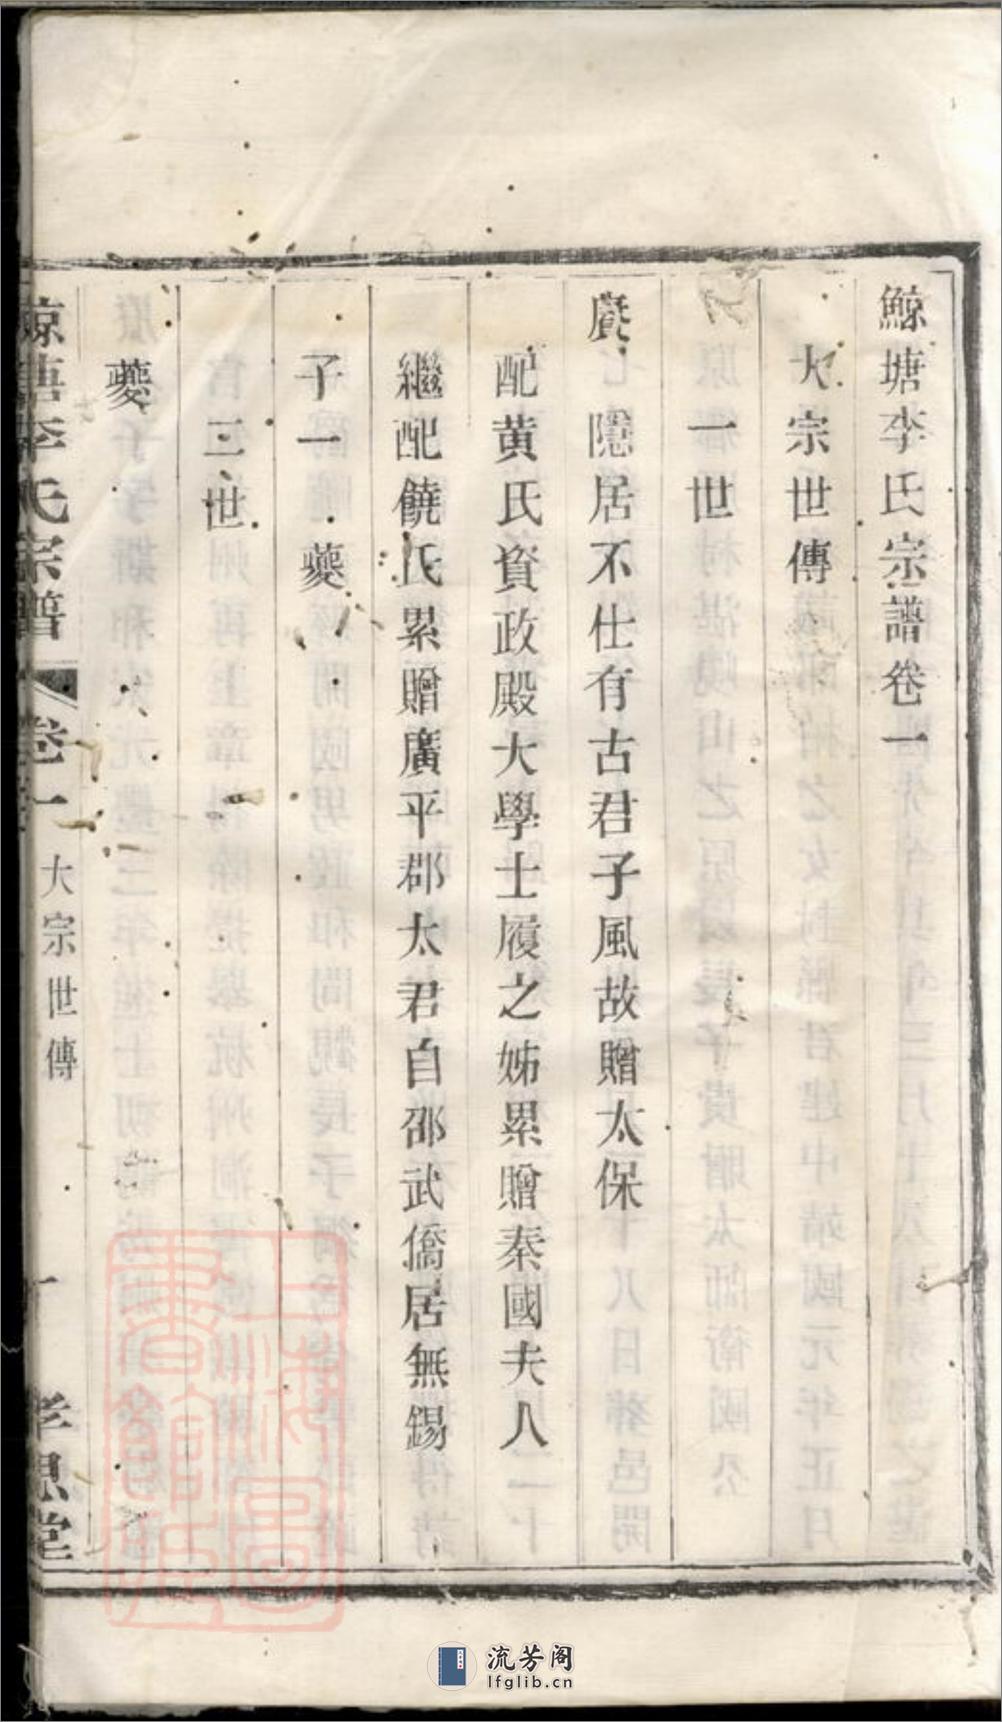 鯨塘李氏宗譜卷一
大宗世傳
一世
賡 隱居不仕有古君子風故贈太保
配黄氏資政殿大學士履之姊累贈秦國夫人
繼配饒氏累贈廣平郡太君自邵武僑居無錫
子一 夔
二世
夔
鯨塘李氏宗譜 卷一 大宗世傳 一 孝思堂
上海圖書館藏
流芳阁
lfglib.cn